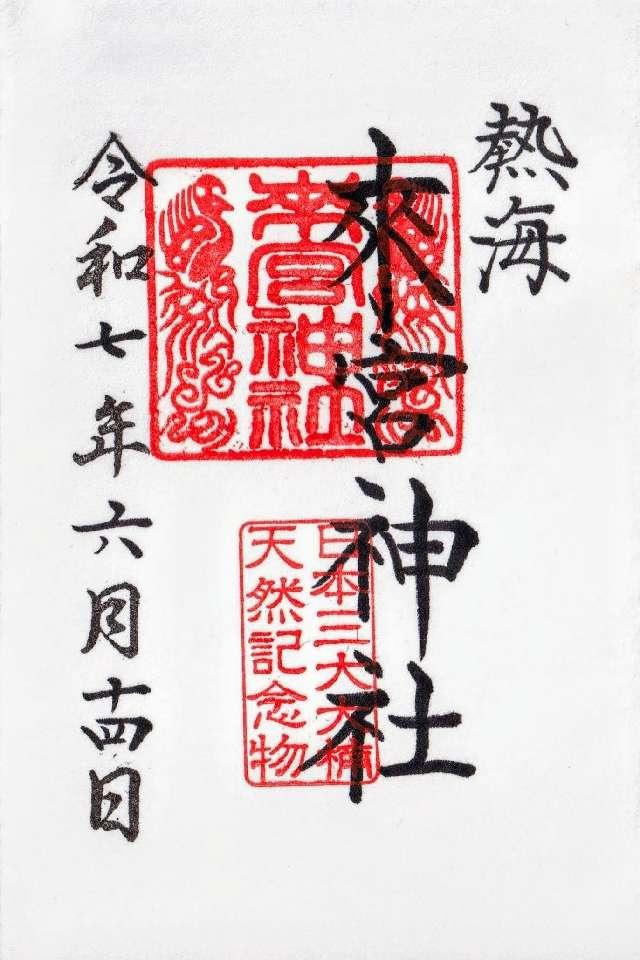 熱海
來宮神社
來宮神社
日本三大大楠
天然記念物
令和七年六月十四日